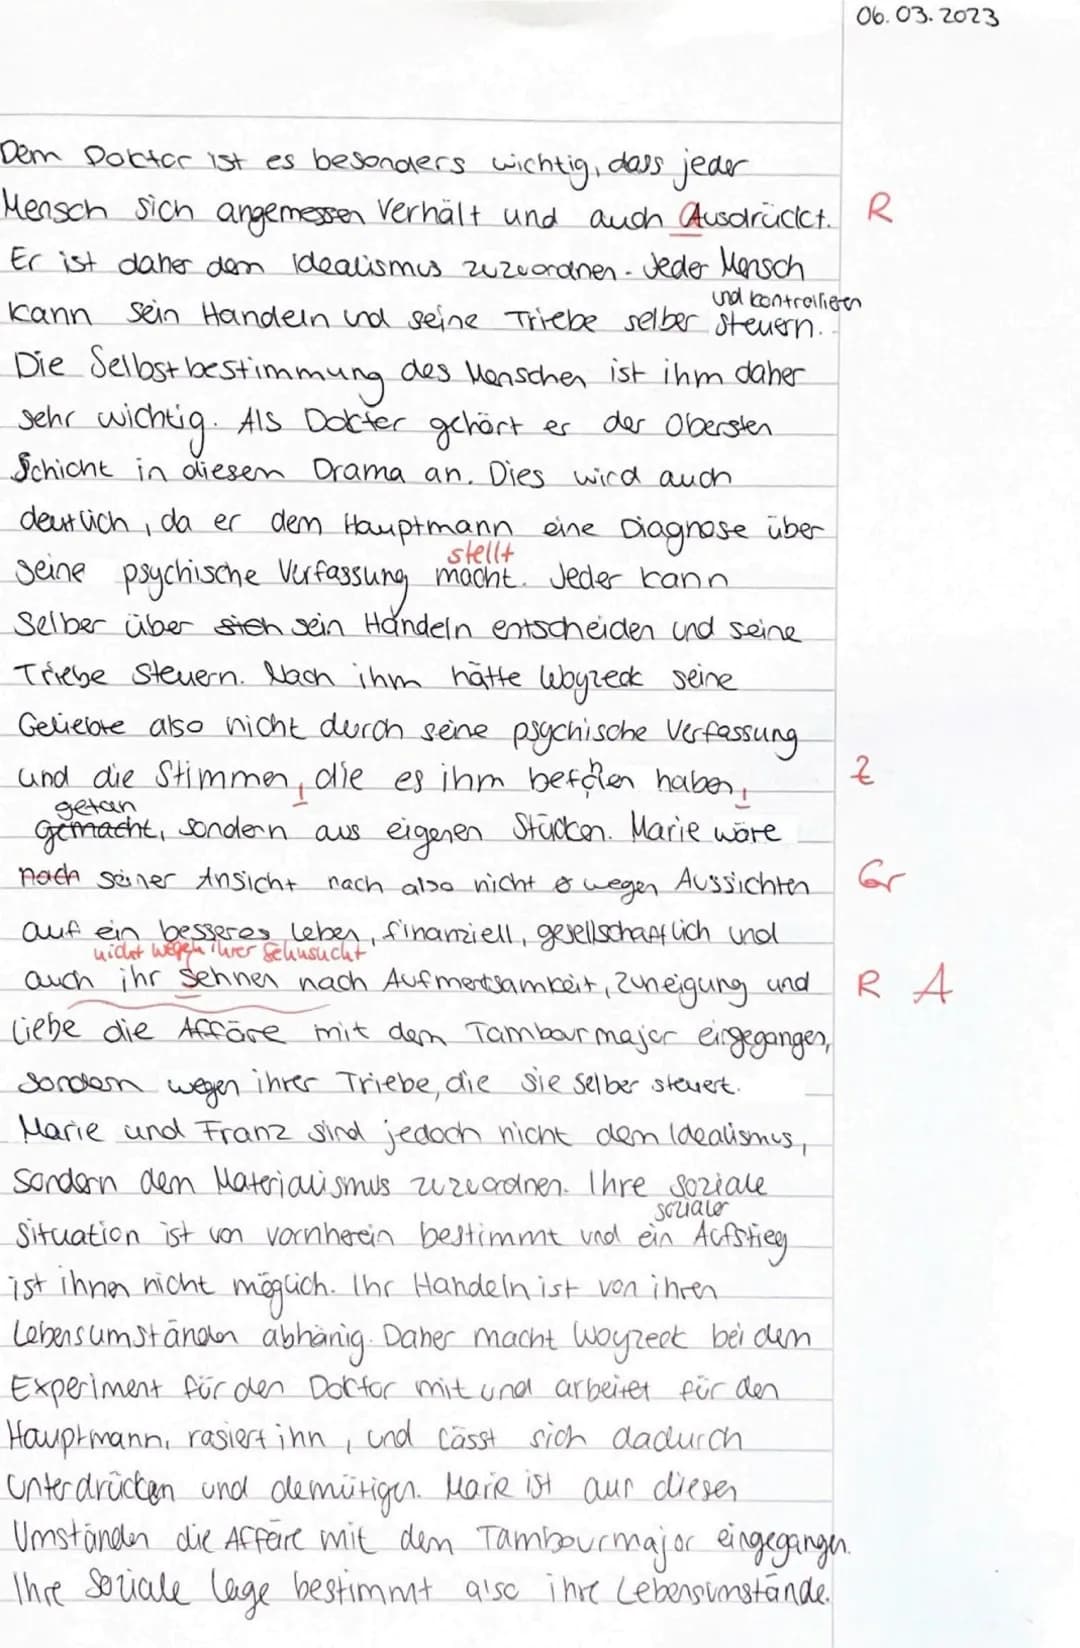 06.03.2023
Dem Doktor ist es besonders wichtig, dass jeder
Mensch sich angemessen Verhält und auch Ausdrückt. R
Er ist daher dem Idealismus zuzuordnen. Jeder Mensch
und kontrollieren
kann sein Handeln und seine Triebe selber steuern.
Die Selbstbestimmung des Menschen ist ihm daher
sehr wichtig. Als Dokter gehört er der Obersten
Schicht in diesem Drama an. Dies wird auch
deutlich, da er dem Hauptmann eine Diagnose über
stellt
seine psychische Verfassung macht. Jeder kann
Selber über sich sein Handeln entscheiden und seine
Triebe Steuern. Nach ihm hätte Woyzeck seine
Geliebte also nicht durch seine psychische Verfassung
und die Stimmen, die es ihm befohlen haben, Z
getan
gemacht, sondern aus eigenen Stücken. Marie wäre
nach seiner Ansicht nach also nicht wegen Aussichten Gr
auf ein besseres Leben, finanziell, gesellschaftlich und
nicht wegen ihrer Sehnsucht
auch ihr Sehnen nach Aufmerksamkeit, Zuneigung und R A
Liebe die Affäre mit dem Tambourmajor eingegangen,
sondern wegen ihrer Triebe, die sie selber steuert.
Marie und Franz sind jedoch nicht dem Idealismus,
sondern dem Materialismus zuzuordnen. Ihre soziale
sozialer
Situation ist von vornherein bestimmt und ein Aufstieg
ist ihnen nicht möglich. Ihr Handeln ist von ihren
Lebensumständen abhänig. Daher macht Woyzeck bei dem
Experiment für den Doktor mit und arbeitet für den
Hauptmann, rasiert ihn, und lässt sich dadurch
unterdrücken und demütigen. Marie ist aur diesen
Umständen die Affäre mit dem Tambourmajor eingegangen.
Ihre Soziale Lage bestimmt also ihre Lebensumstände.